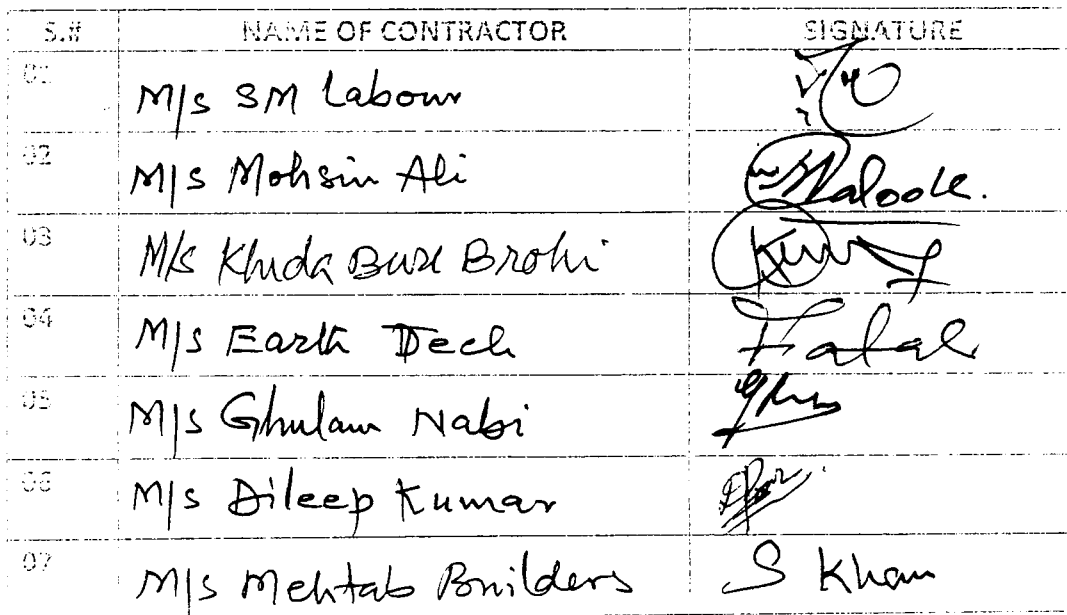 S.# NAME OF CONTRACTOR SIGNATURE
01 M/s SM Labour
02 M/s Mohsin Ali
03 M/s Khuda Bux Brohi
04 M/s Earth Tech
05 M/s Ghulam Nabi
06 M/s Dileep Kumar
07 M/s Mehtab Builders S Khan